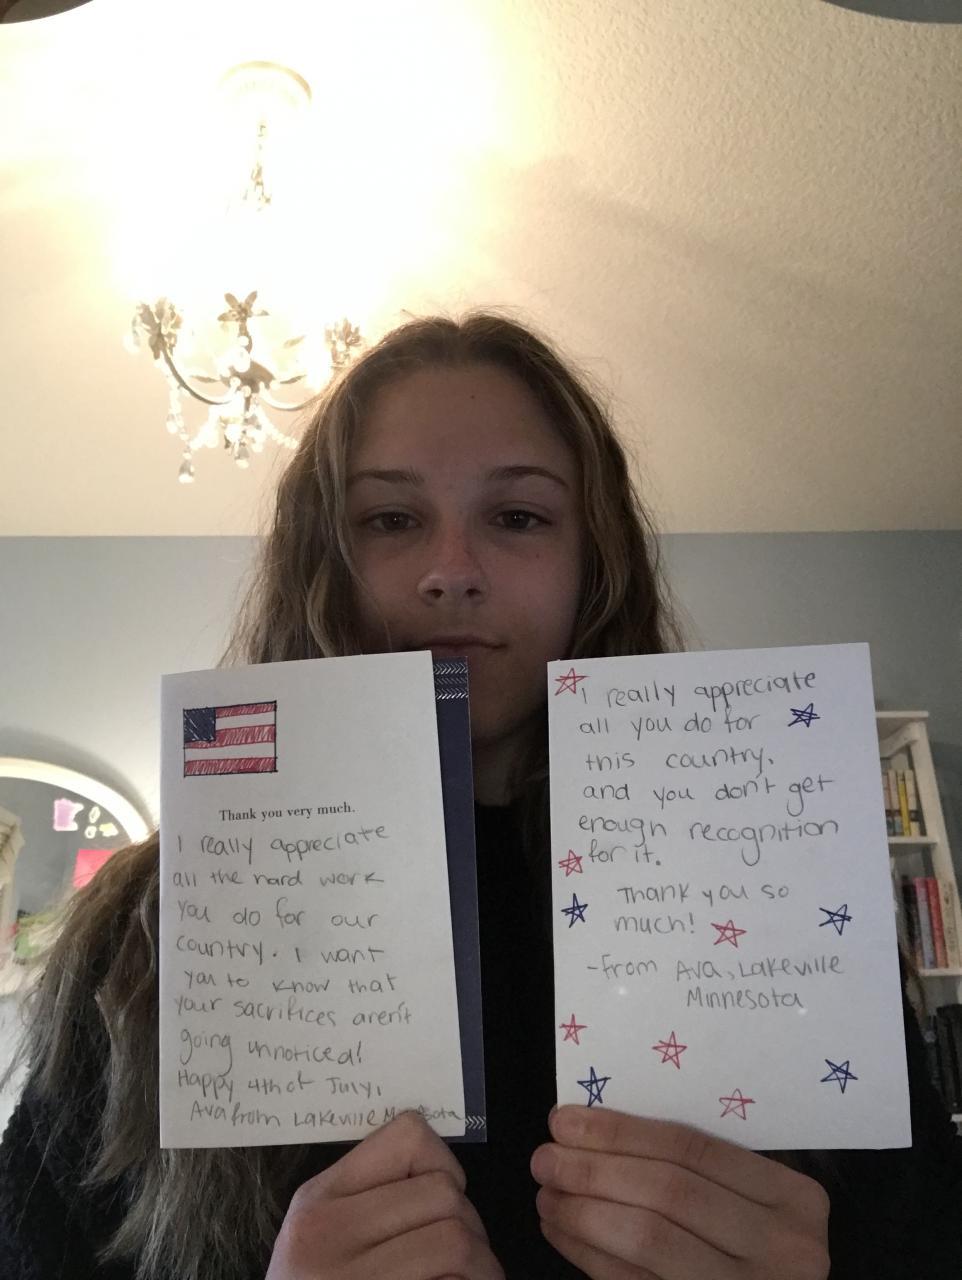 Thank you very much.
I really appreciate
all the hard work
you do for our
country. I want
you to know that
your sacrifices aren't
going unnoticed!
Happy 4th of July,
Ava from Lakeville Minnesota
I really appreciate
all you do for
this country,
and you don't get
enough recognition
for it.
Thank you so
much!
-From Ava, Lakeville
Minnesota